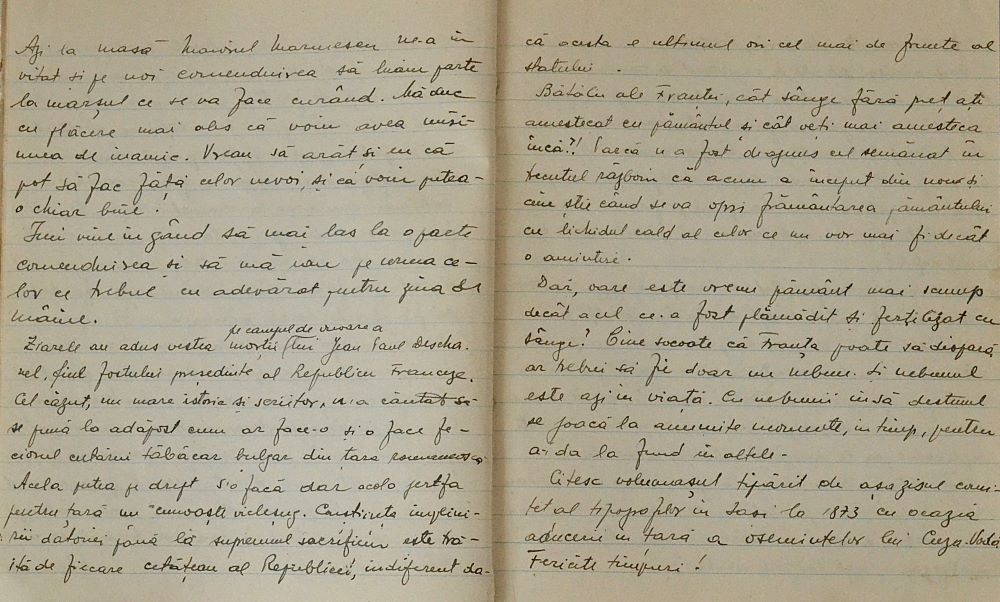 Azi la masă Maiorul Marinescu ne-a in
vitat și pe noi comenduirea să luăm parte
la marșul ce se va face curând. Mă duc
cu plăcere mai ales că voiu avea misi-
unea de inamic. Vreau să arăt și eu că
pot să fac față celor nevoi, și că voiu putea-
o chiar bine.
Îmi vine în gând să mai las la o parte
comenduirea și să mă iau pe urma ce-
lor ce trebue cu adevărat pentru ziua de
mâine.
Ziarele au adus vestea morții pe campul de onoare a lui Jean Paul Descha-
nel, fiul fostului președinte al Republicei Franceze.
Cel căzut, un mare istoric și scriitor, n'a căutat să
se pună la adăpost cum ar face-o și o face fe-
ciorul cutărui tăbăcar bulgar din țara românească,
Acela putea pe drept s'o facă dar acolo jertfa
pentru țară nu cunoaște vicleșug. Conștiința împlini-
rii datoriei până la supremul sacrificiu este tră-
ită de fiecare cetățean al Republicei, indiferent da-
că acesta e ultimul ori cel mai de frunte al
statului.
Bătălii ale Franței, cât sânge fără preț ați
amestecat cu pământul și cât veți mai amesteca
încă?! Parcă n'a fost deajuns cel semănat în
trecutul războiu că acum a început din nou și
cine știe când se va opri frământarea pământului
cu lichidul cald al celor ce nu vor mai fi decât
o amintire.
Dar, oare este vreun pământ mai scump
decât acel ce-a fost plămădit și fertilizat cu
sânge? Cine socoate că Franța poate să dispară,
ar trebui să fie doar un nebun. Și nebunul
este azi în viață. Cu nebunii însă destinul
se joacă la anumite momente, în timp, pentru
a-i da la fund în altele.
Citesc volumașul tipărit de așazisul comi-
tet al tipografilor în Iași la 1873 cu ocazia
aducerii în țară a osemintelor lui Cuza-Vodă
Fericite timpuri!